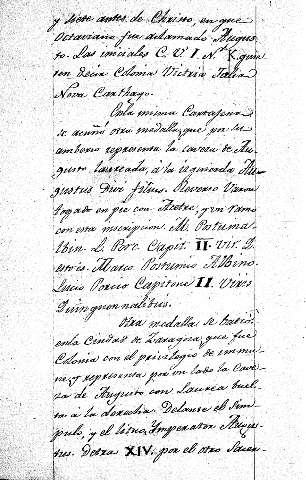 y siete antes de Christo, en que
Octaviano fue aclamado Augus-
to. Las iniciales C. V I. N. K. quie
ren decir Colonia Victrix Iulia
Nova Carthago.
En la misma Cartagena
se acuñó otra medalla, que por su
anberso representa la caveza de Au-
gusto laureada, a la izquierda Au-
gustus Divi filius. Reverso Varon
togado en pie con Acetre, y un ramo
con esta inscripcion M. Postum.
Albin. L. Porc. Capit. II. Vir. Q.
Marco Postumio Albino
Lucio Porcio Capitone II. Viris
Quinquennalibus.
Otra medalla se batió
en la Ciudad de Zaragoza, que fue
Colonia con el privilegio de inmu
ne, y representa por un lado la Cave
za de Augusto con Laurea buel-
ta a la derecha. Delante el Sim-
pulo, y el lituo, Imperator Augus-
tus. Detras XIV. por el otro Sacer-